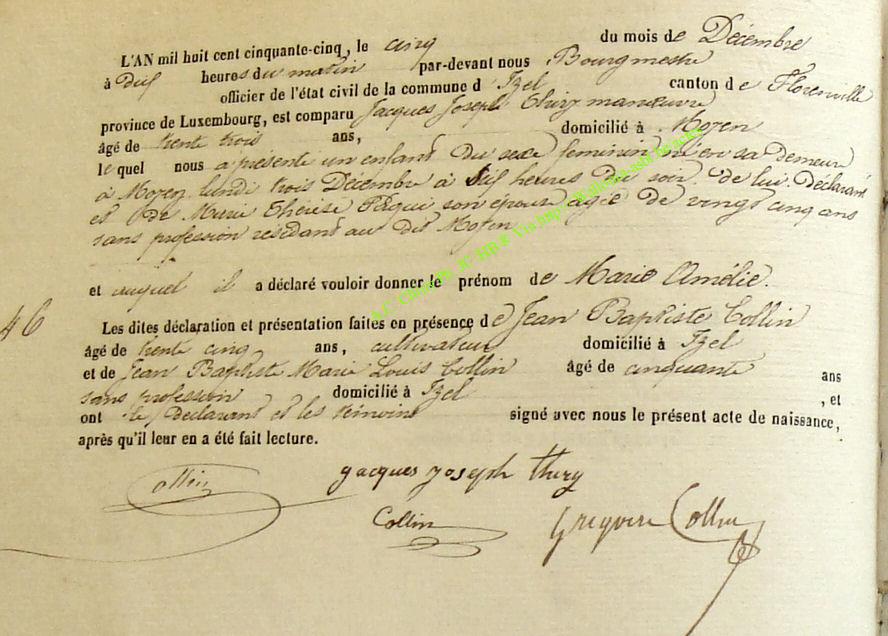 L'AN mil huit cent cinquante-cinq, le cinq du mois de Décembre
à heures du matin par-devant nous Bourgmestre
officier de l'état civil de la commune d'Izel canton de Florenville
province de Luxembourg, est comparu Jacques Joseph Thiry manœuvre
âgé de trente trois ans, domicilié à Moyen
lequel nous a présenté un enfant du sexe feminin né en sa demeure
à Moyen lundi trois Décembre à heures du soir de lui Déclarant
et de Marie Thérèse son épouse agée de vingt cinq ans
sans profession résidant au dit Moyen
et auquel il a déclaré vouloir donner le prénom de Marie Amélie.
46
Les dites déclaration et présentation faites en présence de Jean Baptiste Collin
âgé de trente cinq ans, cultivateur domicilié à Izel
et de Jean Baptiste Marie Louis Collin âgé de cinquante ans
sans profession domicilié à Izel , et
ont le Déclarant et les témoins signé avec nous le présent acte de naissance,
après qu'il leur en a été fait lecture.
Collin Jacques Joseph thiry
Collin Collin